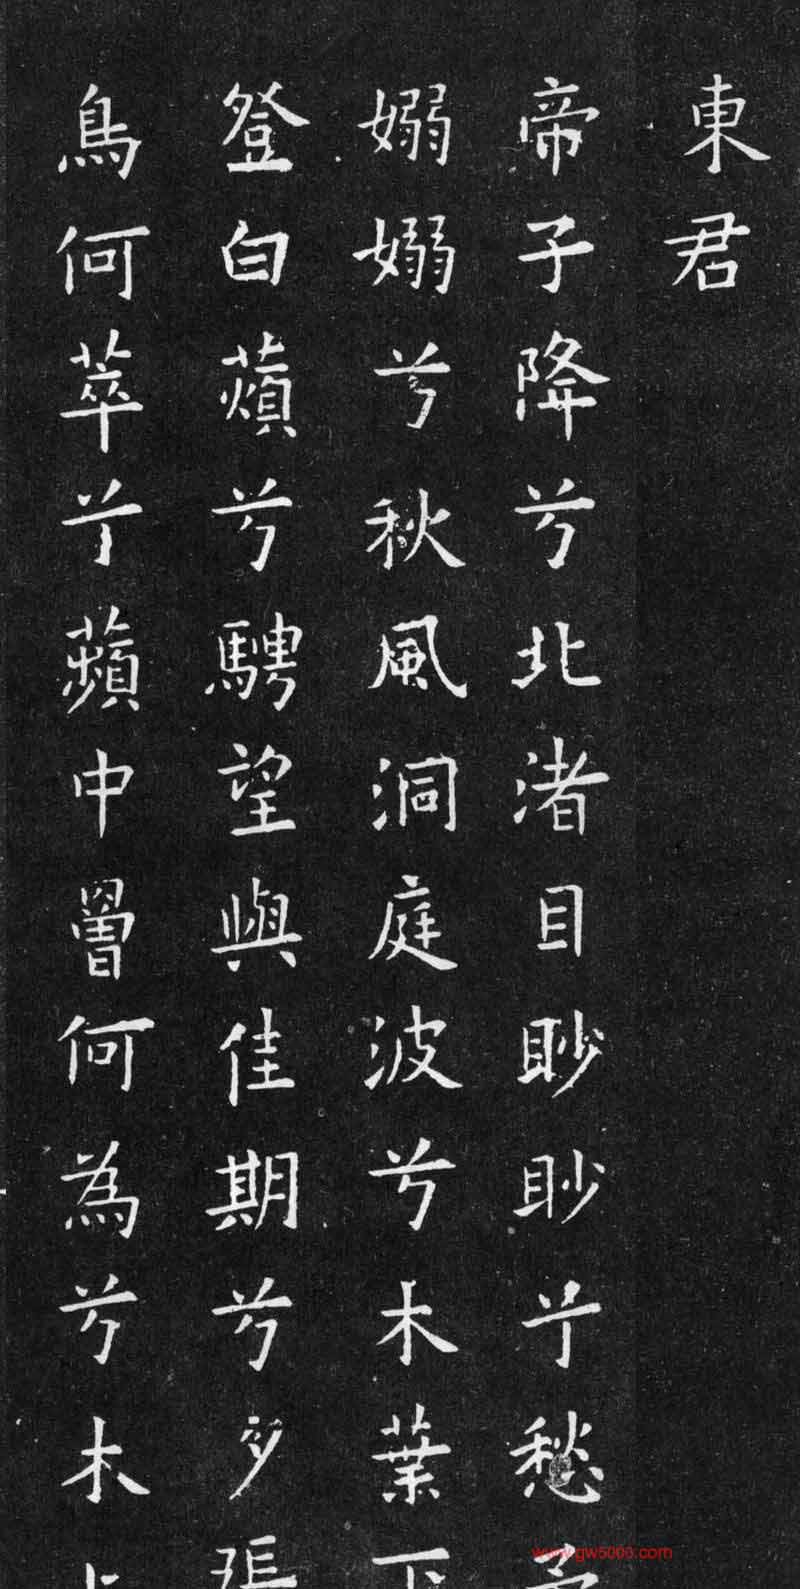 東君
帝子降兮北渚目眇眇兮愁予
嫋嫋兮秋風洞庭波兮木葉下
登白薠兮騁望與佳期兮夕張
鳥何萃兮蘋中罾何為兮木上
www.gw5000.com